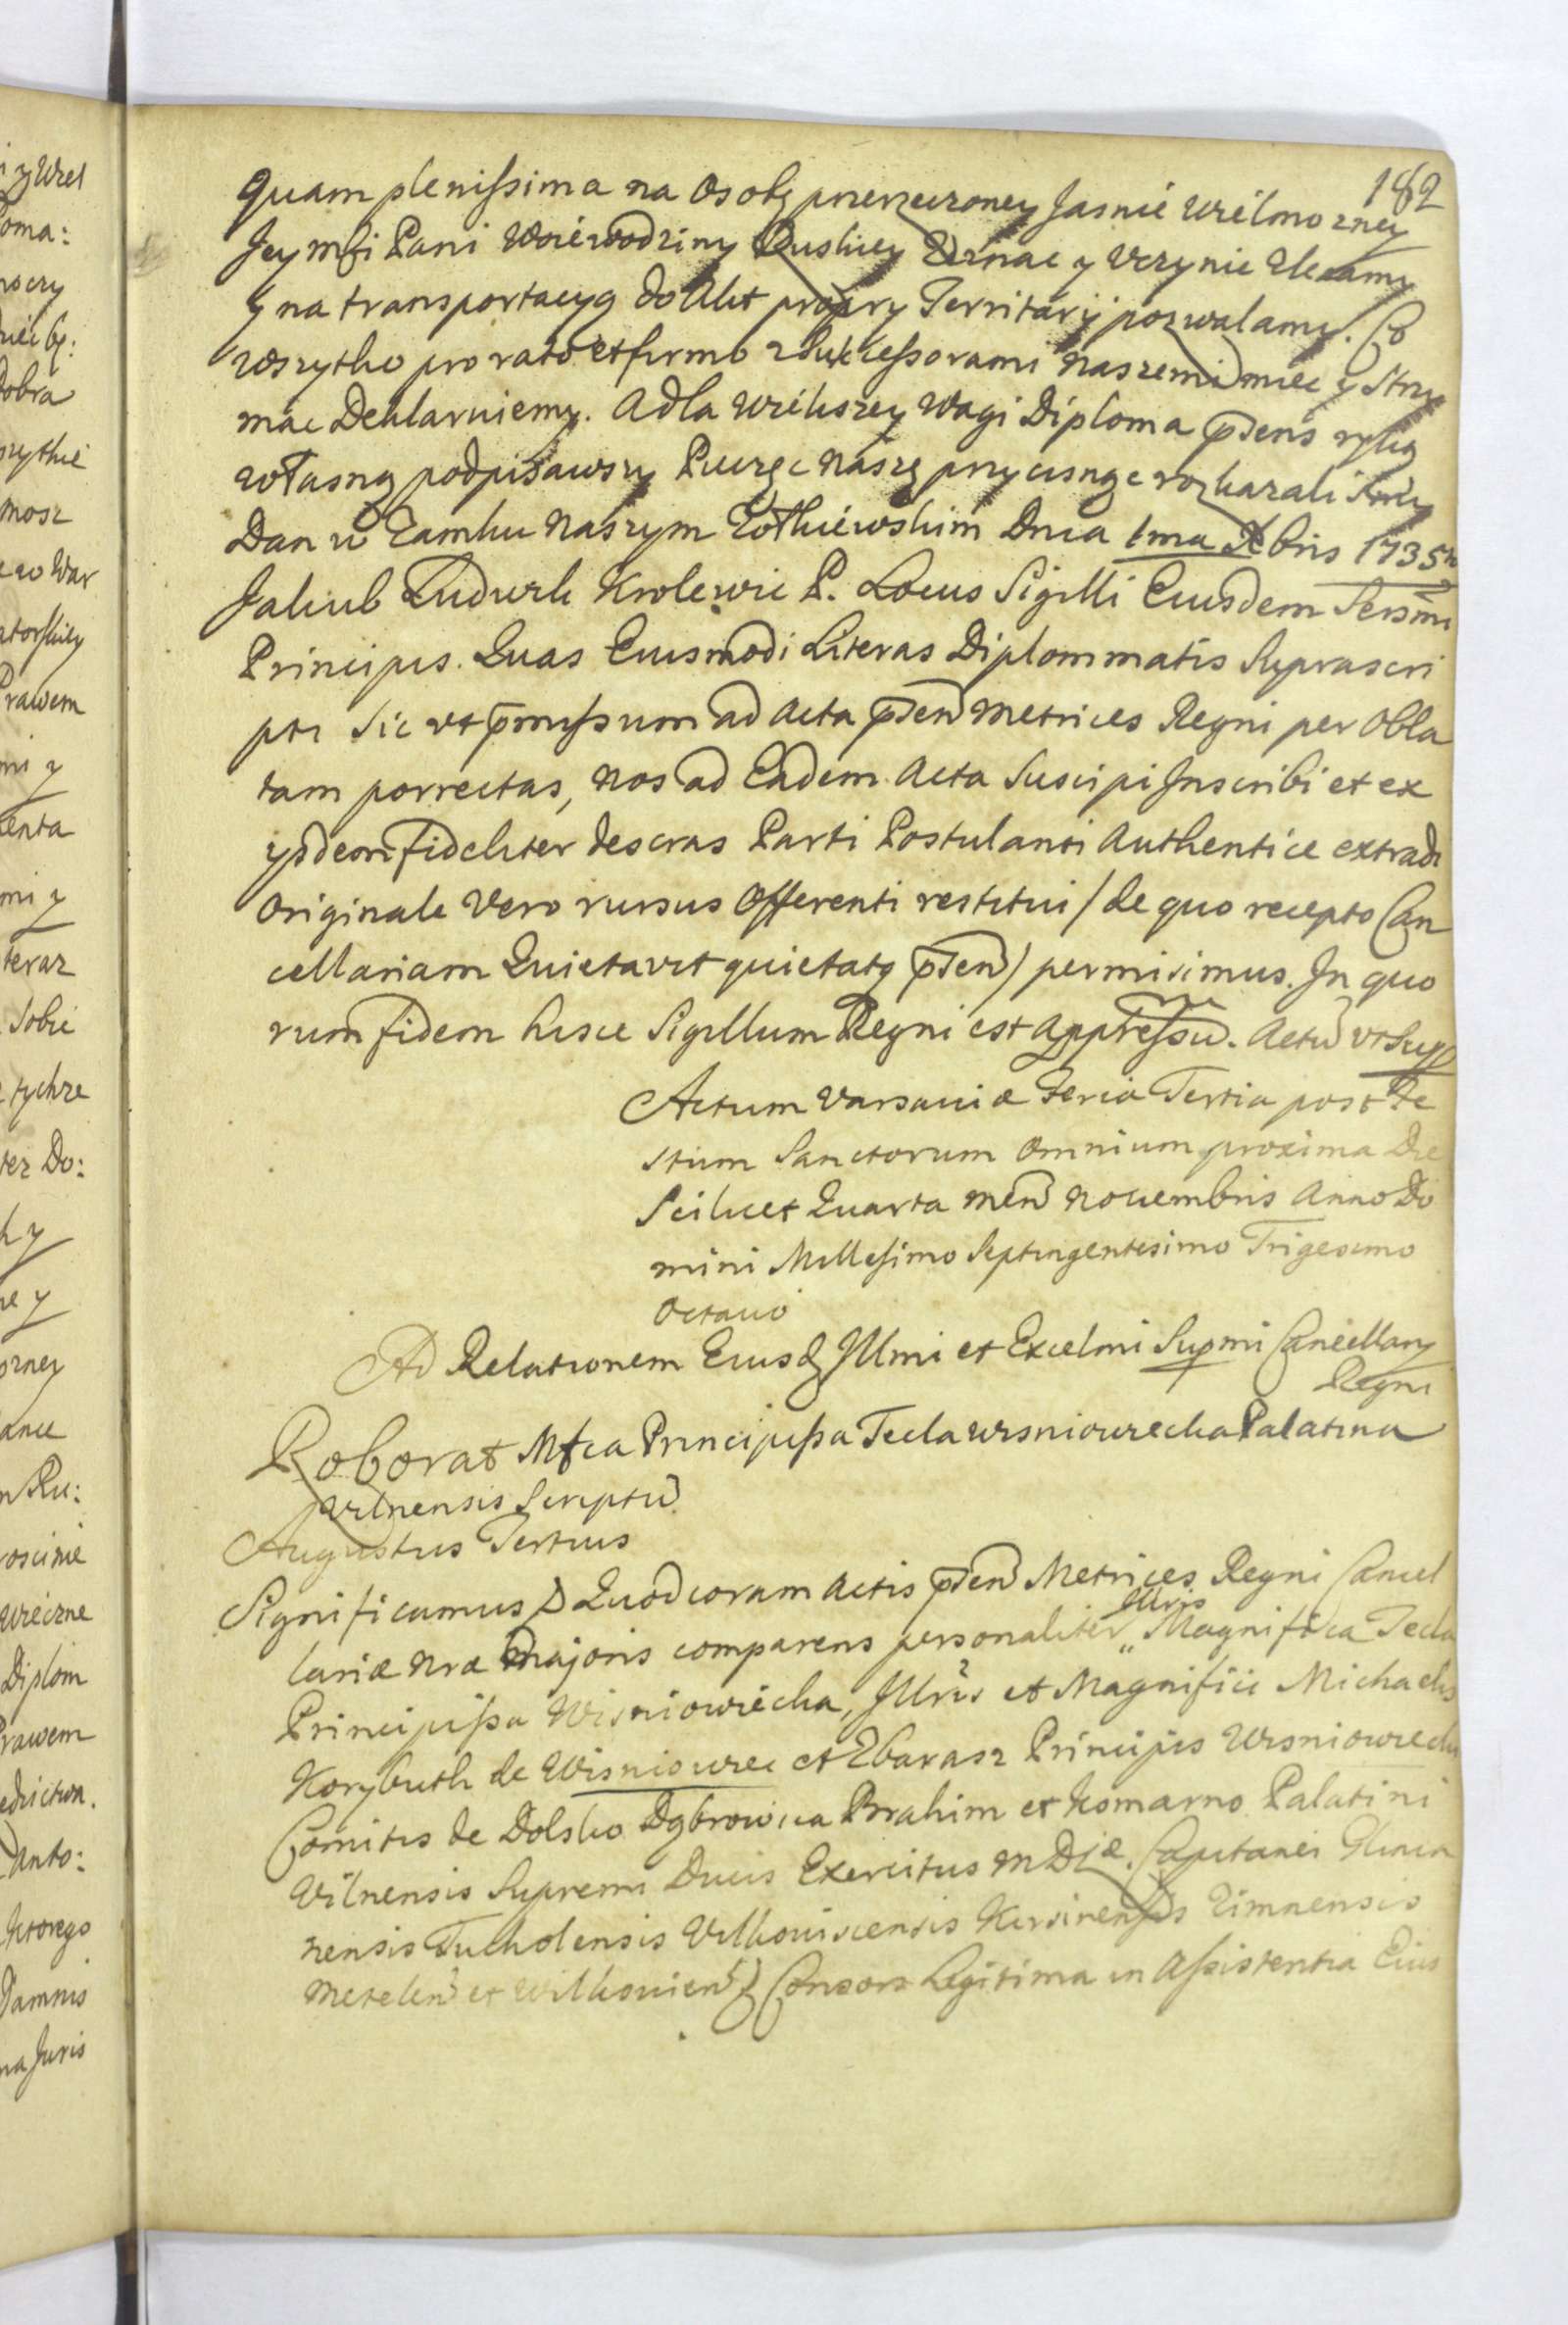 182
quam plenissima na Osobę przerzeczoney Jasnie Wielmozney
Jey mści Pani Woiewodziny Ruskiey Zeznac y Uczynic Zlecamy
y na transportacyą do Akt propry Territorij pozwalamy. Co
wszytko pro rato et firmo z Sukcessorami naszemi miec y Strzy
mac Deklaruiemy. A dla wiekszey wagi Diploma pnsens ręką
własną podpisawszy Pieczęc naszę przycisnąc rozkazali smy
Dan w Zamku Naszym Zołkiewskim Dnia 1ma Xbris 1735
Jakub Ludwik Krolewic P. Locus Sigilli Eiusdem Sersmi
Principis. Quas Eiusmodi Literas Diplommatis Suprascri
pti Sic ut pmissum ad Acta psen Metrices Regni per Obla
tam porrectas, nos ad Eadem Acta Suscipi Inscribi et ex
ysdem fideliter descras Parti Postulanti Authentice extradi
Originale Vero rursus Offerenti restitui / de quo recepto Can
cellariam Quietavit quietatq psen / permisimus. In quo
rum fidem hisce Sigillum Regni est appressu. Actu ut Sup
Actum Varsaviæ Feria Tertia post Fe
stum Sanctorum Omnium proxima Die
Scilicet Quarta men Novembris Anno Do
mini Millesimo Septingentesimo Trigesimo
Octavo
Ad Relationem Eiusd Illmi et Excelmi Supmi Cancellary
Regni
Roborat Mfca Principissa Tecla Wisniowiecka Palatina
Vilnensis Scriptu
Augustus Tertius
Significamus Quod coram Actis psen Metrices Regni Cancel
Illris
lariæ nræ Majoris comparens personaliter Magnifica Tecla
Principissa Wisniowiecka, Illris et Magnifici Michaelis
Korybuth de Wisniowiec et Zbarasz Principis Wisniowiecki
Comitis de Dolsko Dąbrowica Brahim et Komarno Palatini
Vilnensis Supremi Ducis Exercitus M D L æ. Capitanei
nensis Tucholensis Vilkoviscensis Zimnensis
Metelen et Wilkovien Consors Legitima in Assistentia Eius